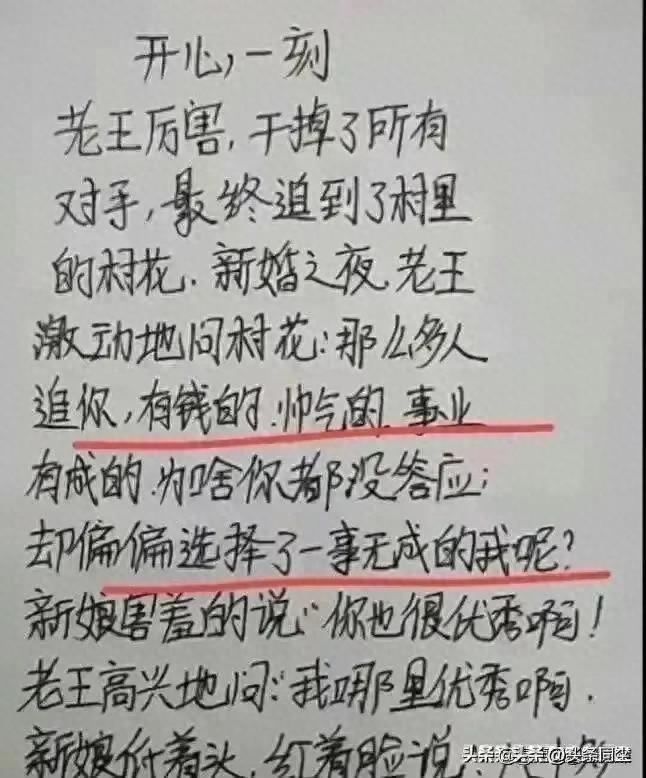 开心一刻
老王厉害,干掉了所有
对手,最终追到了村里
的村花.新婚之夜.老王
激动地问村花:那么多人
追你,有钱的.帅气的.事业
有成的.为啥你都没答应;
却偏偏选择了一事无成的我呢?
新娘害羞的说:“你也很优秀啊!
老王高兴地问:“我哪里优秀啊.
新娘低着头,红着脸说
头条@头条@